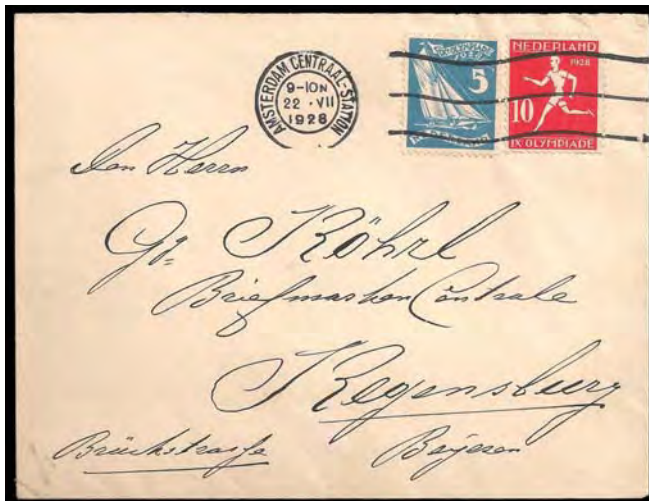 AMSTERDAM CENTRAAL-STATION
9-10N
22 · VII
1928
5
NEDERLAND
1928
10
IX OLYMPIADE
Den Herrn
Gg. Röhrl
Briefmarken Centrale
Regensburg
Brückstrasse
Bayern